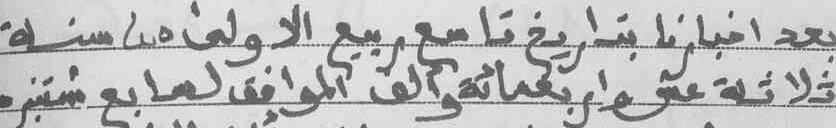 بعد اخبارنا بتاريخ تاسع ربيع الاولى من سنة
ثلاثة عشر واربعمائة وألف الموافق لسابع شتنبر